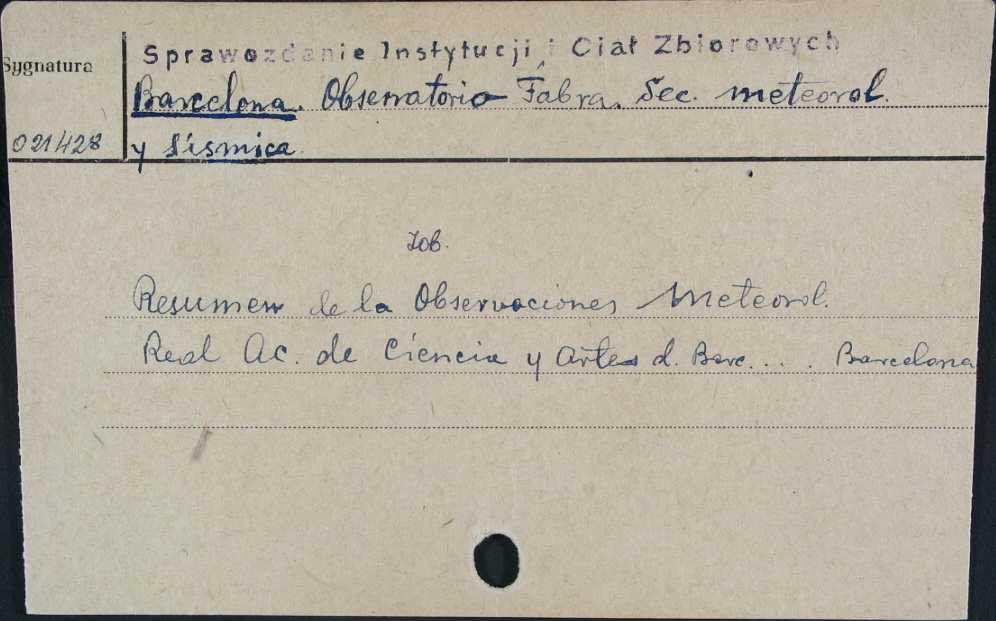 Sprawozdanie Instytucji i Ciał Zbiorowych
Sygnatura
Barcelona. Observatorio Fabra. Sec. meteorol.
021428
y Sísmica.
Zob.
Resumen de la Observaciones Meteorol.
Real Ac. de Ciencia y Artes d. Barc... . Barcelona